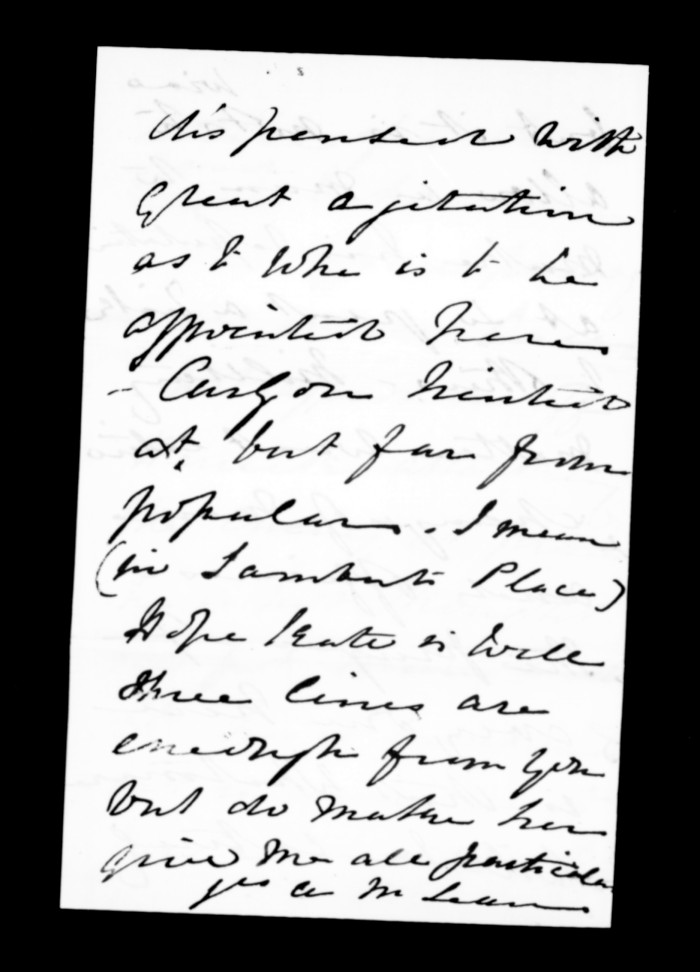 dispensed with
great agitation
as to who is to be
appointed here
- Curzon hinted
at, but far from
popular. I mean
(in Lambert's Place)
Hope Kate is well
three lines are
enough from you
but do make her
give me all particular
yrs a McLean